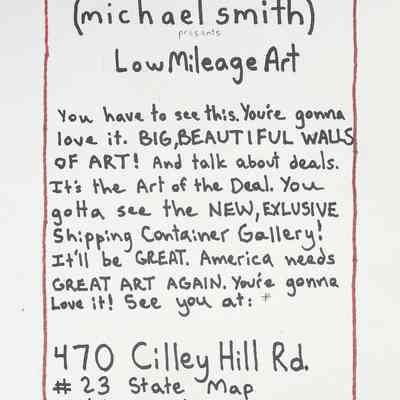 (michael smith)
presents
Low Mileage Art
You have to see this. You're gonna
love it. BIG, BEAUTIFUL WALLS
OF ART! And talk about deals.
It's the Art of the Deal. You
gotta see the NEW, EXLUSIVE
Shipping Container Gallery!
It'll be GREAT. America needs
GREAT ART AGAIN. You're gonna
Love it! See you at: *
470 Cilley Hill Rd.
# 23 State Map